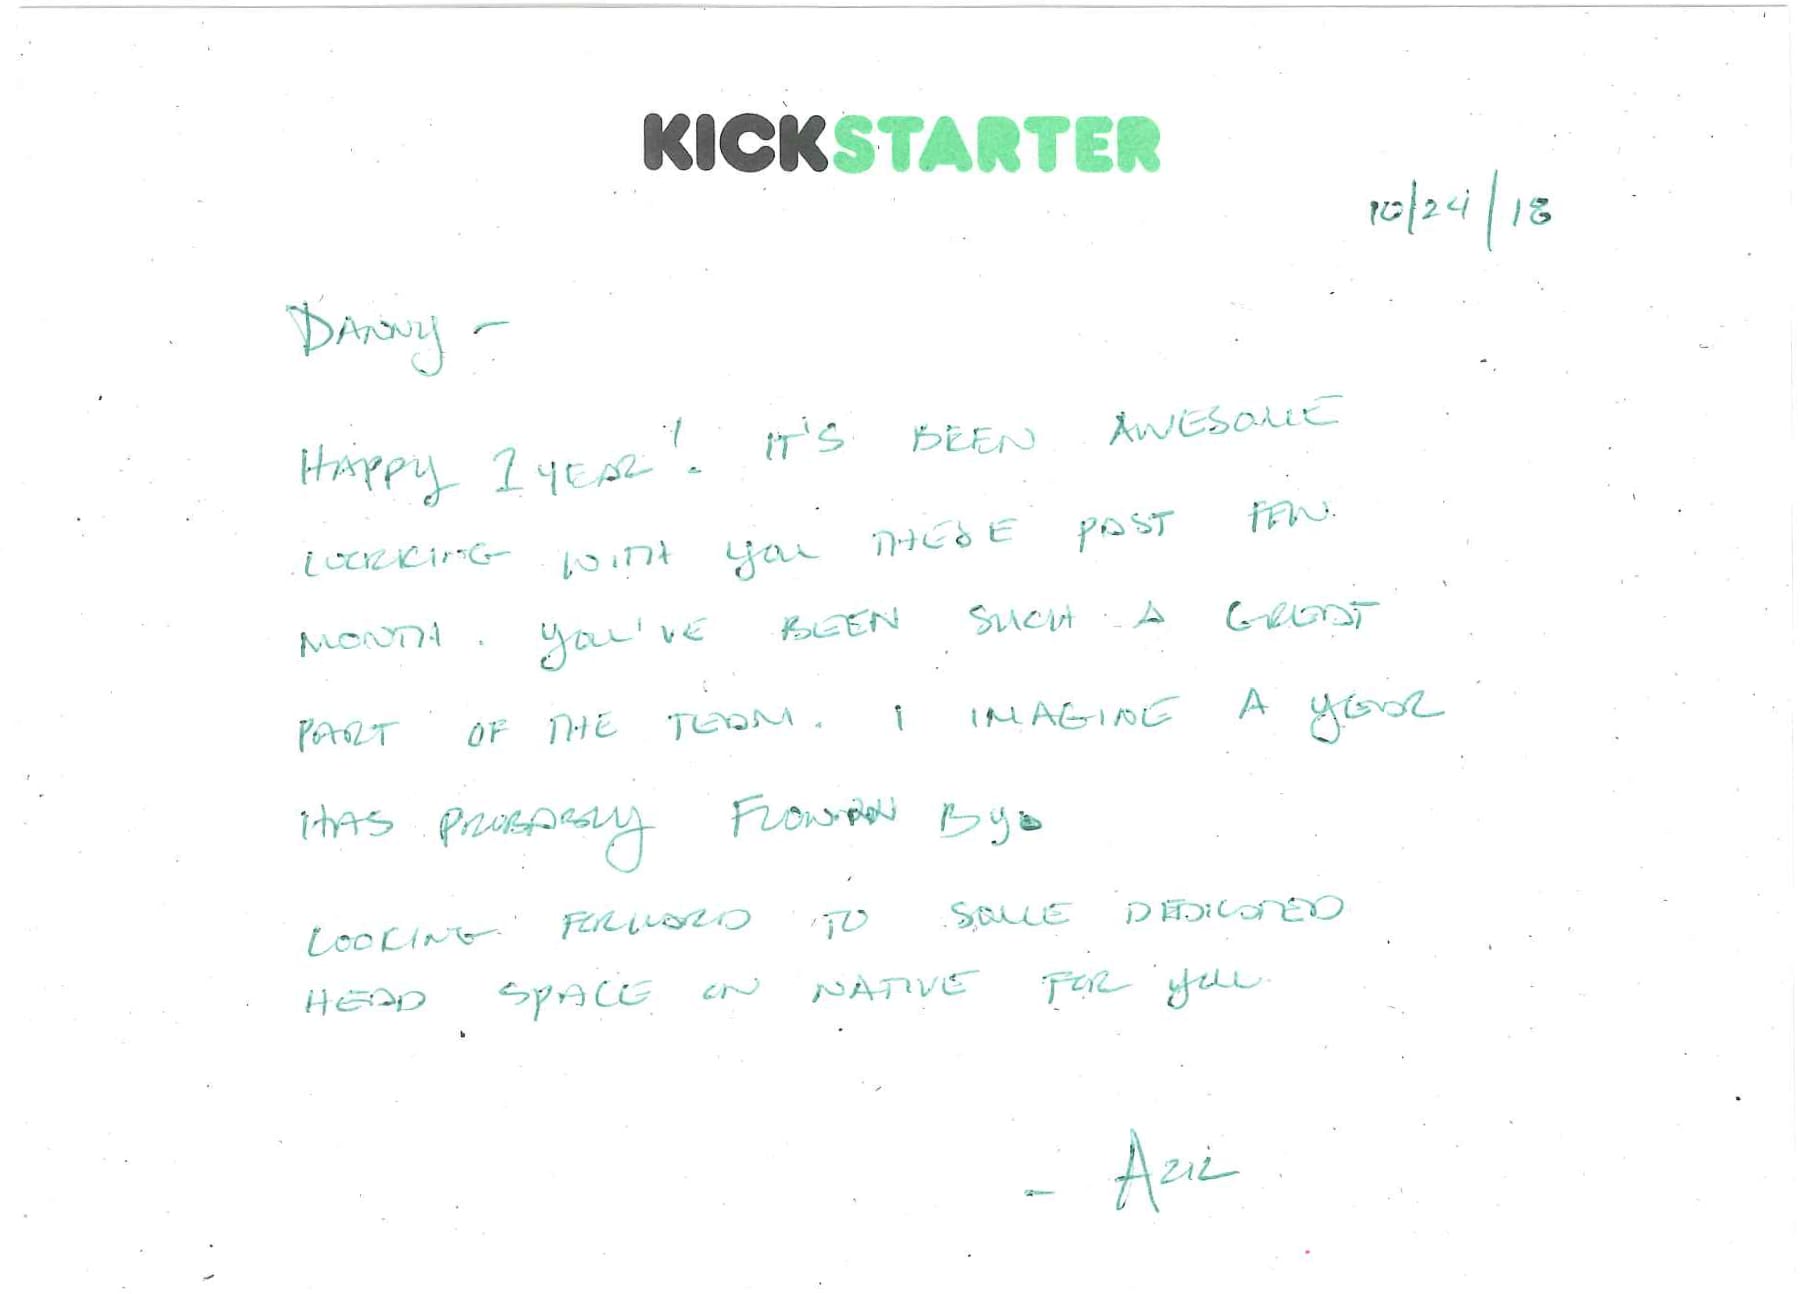 KICKSTARTER
10/24/18
DANNY -
HAPPY 1 YEAR! IT'S BEEN AWESOME
WORKING WITH YOU THESE PAST FEW
MONTH. YOU'VE BEEN SUCH A GREAT
PART OF THE TEAM. I IMAGINE A YEAR
HAS PROBABLY FLOWN BY.
LOOKING FORWARD TO SOME DEDICATED
HEAD SPACE ON NATIVE FOR YOU.
- AZIZ